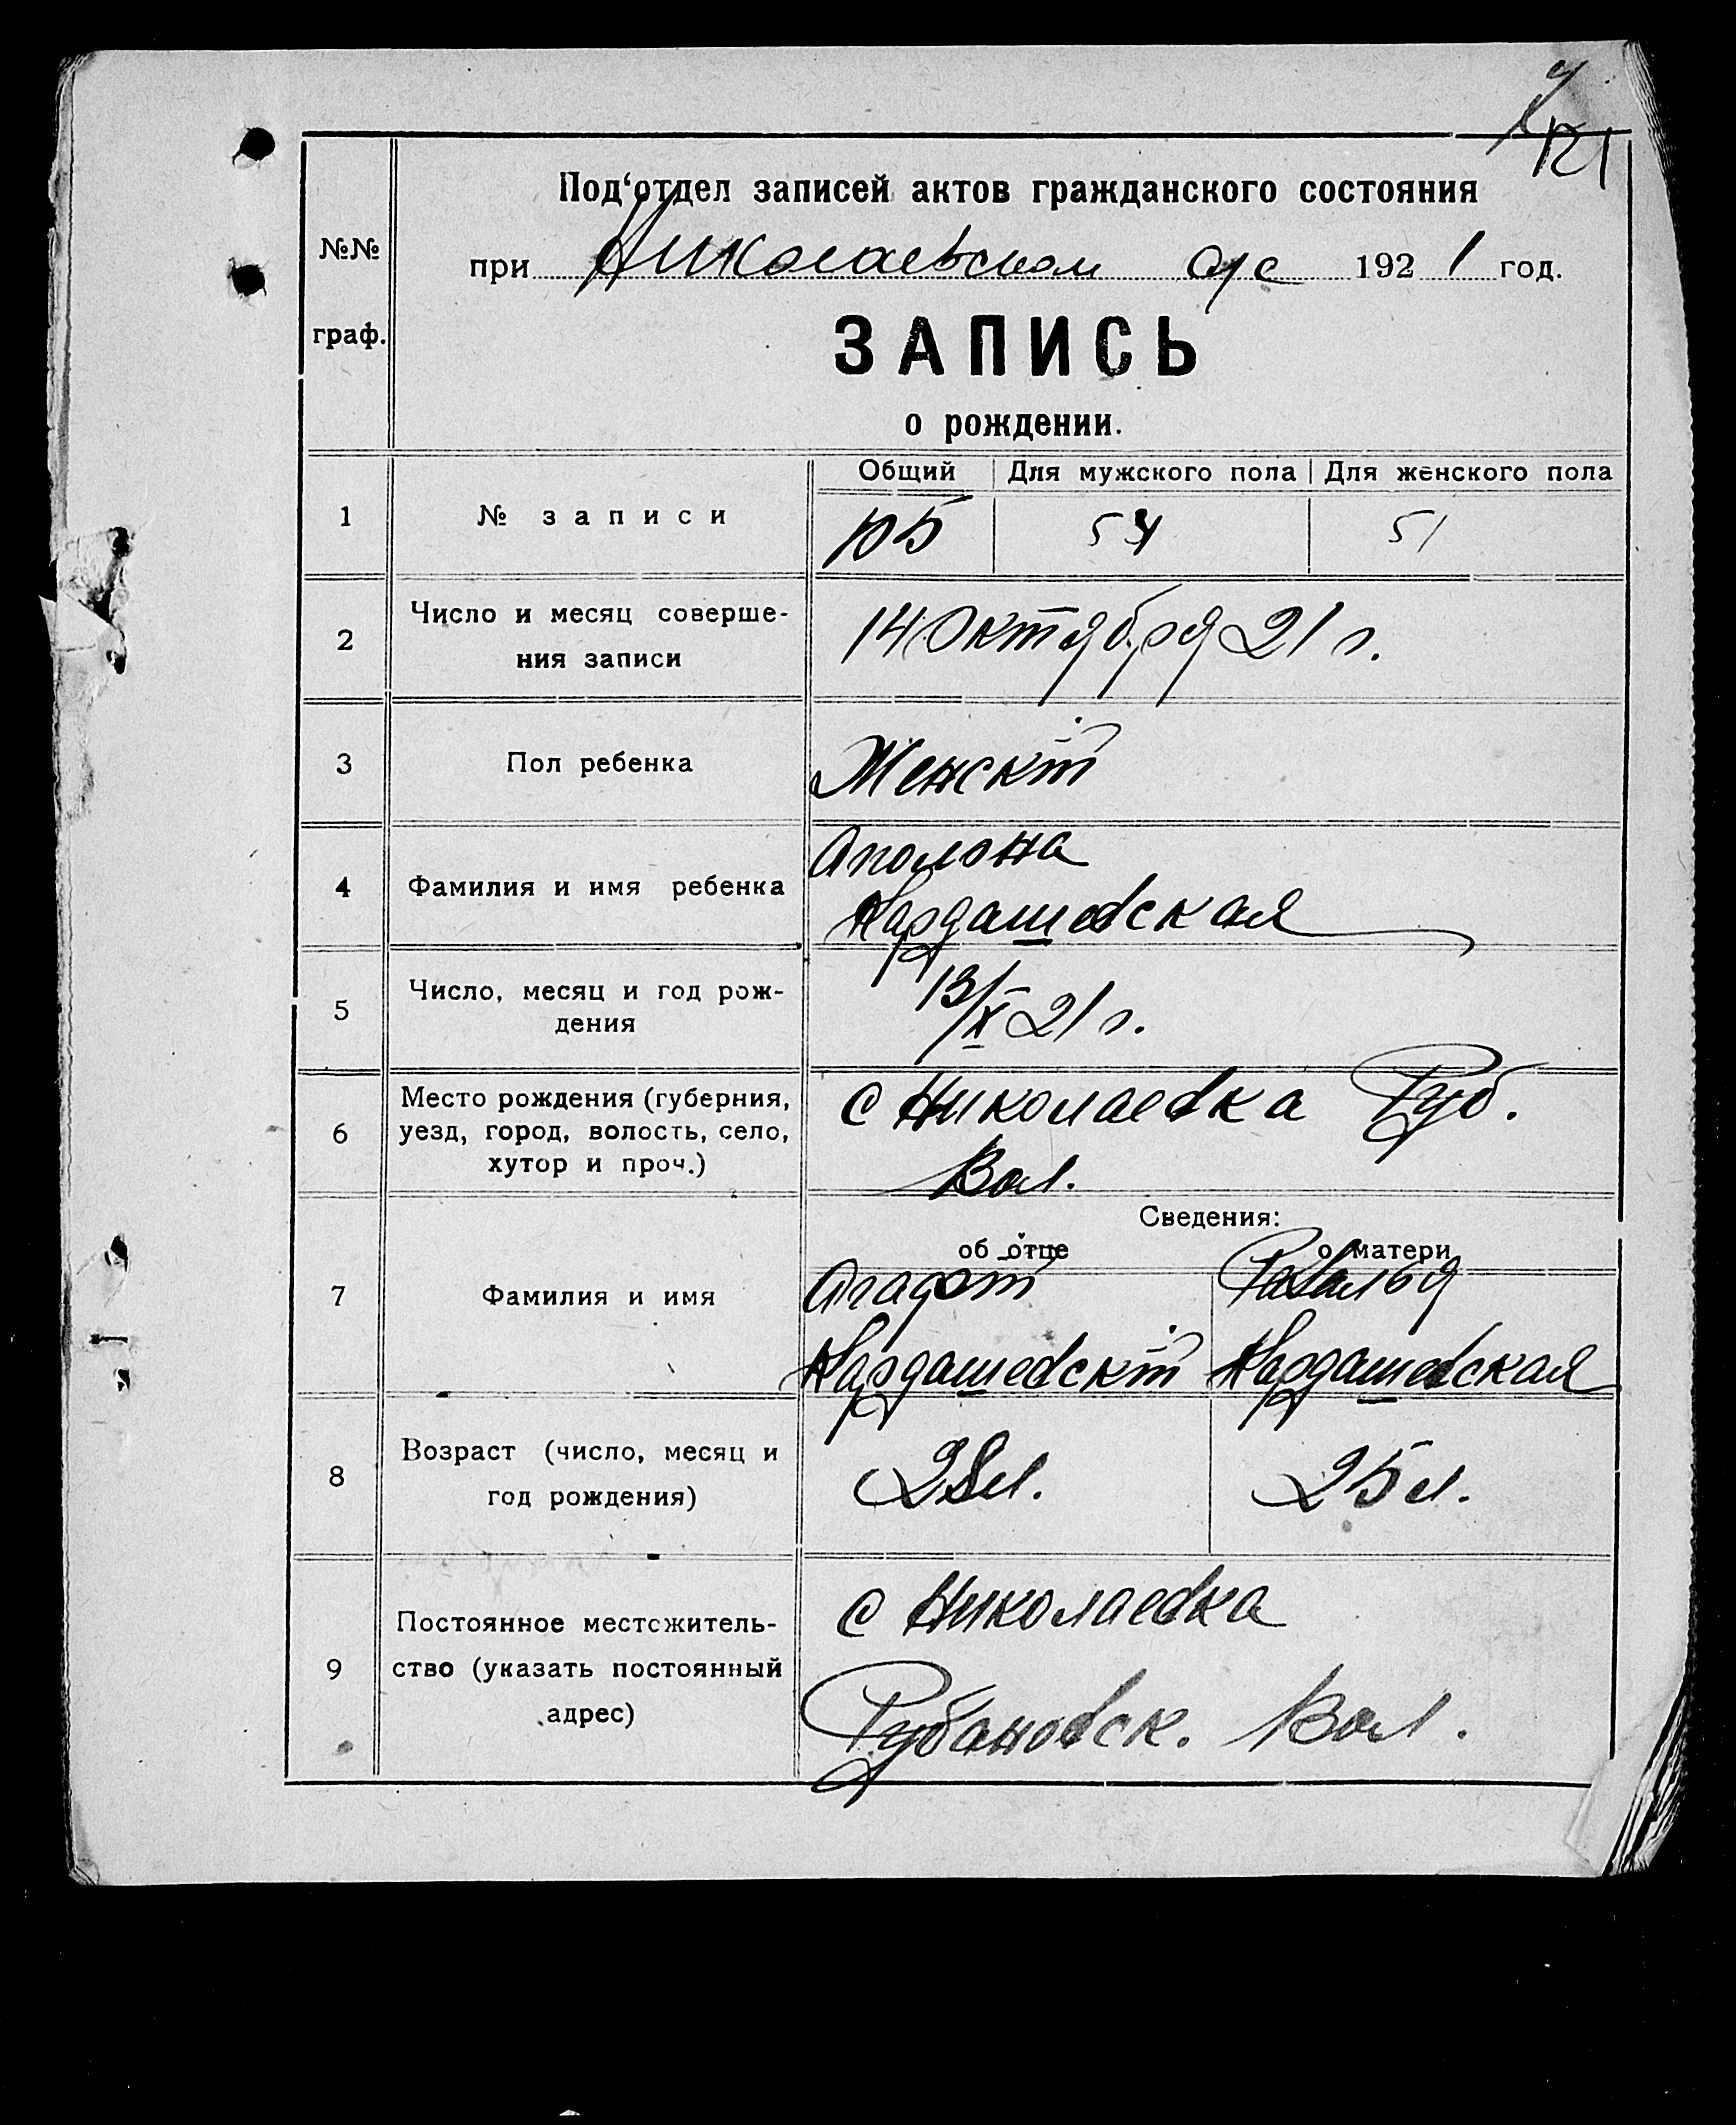 121
Под‘отдел записей актов гражданского состояния
№№
при Николаевском 1921 год.
граф.
ЗАПИСЬ
о рождении.
Общий Для мужского пола Для женского пола
1 № записи 105 54 51
2 Число и месяц соверше-
ния записи
14 Октября 21 г.
3 Пол ребенка Женскій
4 Фамилия и имя ребенка
Аполона
Кардашевская
5 Число, месяц и год рож-
дения
13/X 21 г.
6 Место рождения (губерния,
уезд, город, волость, село,
хутор и проч.)
с Николаевка Руб.
Вол.
Сведения:
об отце о матери
7 Фамилия и имя
Агафот
Кардашевскій Кардашевская
8 Возраст (число, месяц и
год рождения)
28 л. 25 л.
9 Постоянное местожитель-
ство (указать постоянный
адрес)
с Николаевка
Рубановск. Вол.